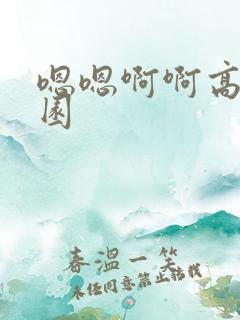 嗯嗯啊啊高
园
春温一笑
未经同意禁止转载